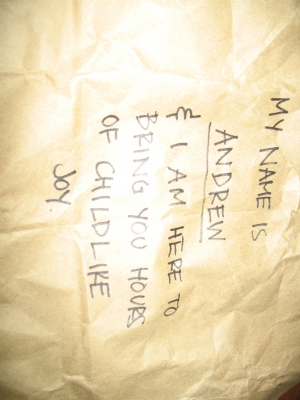 MY NAME IS
ANDREW
& I AM HERE TO
BRING YOU HOURS
OF CHILDLIKE
JOY.